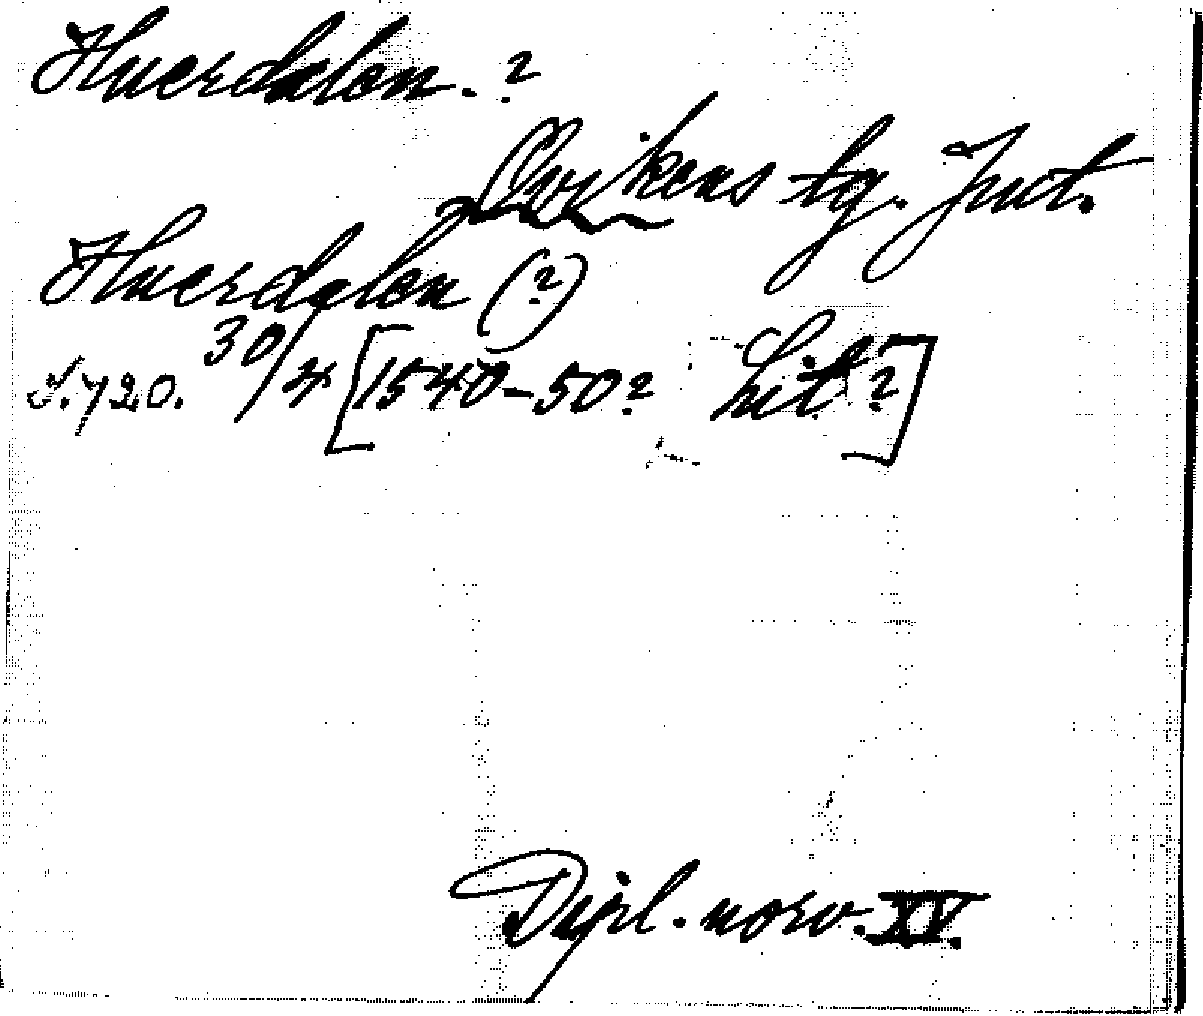 Huerdalen. ?
Orrikens tg. Jmt.
Huerdalen (?)
S. 720. 30/4 [1540-50? hit?]
Dipl. norv. XV.